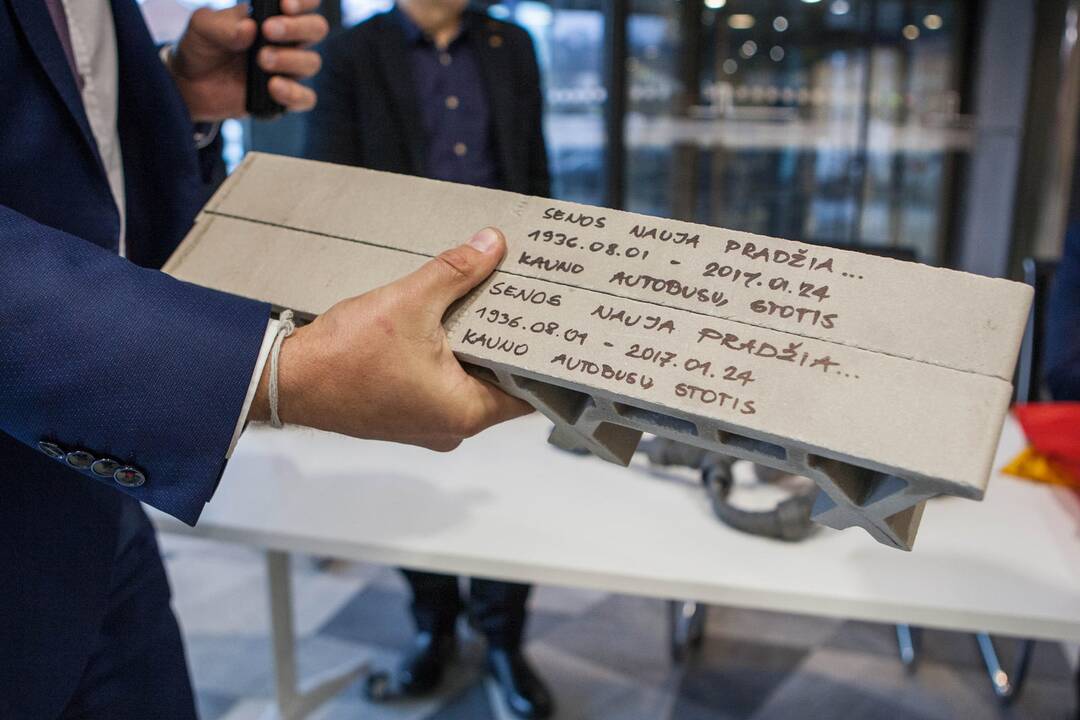 SENOS NAUJA PRADŽIA...
1936.08.01 - 2017.01.24
KAUNO AUTOBUSŲ STOTIS
SENOS NAUJA PRADŽIA...
1936.08.01 - 2017.01.24
KAUNO AUTOBUSŲ STOTIS